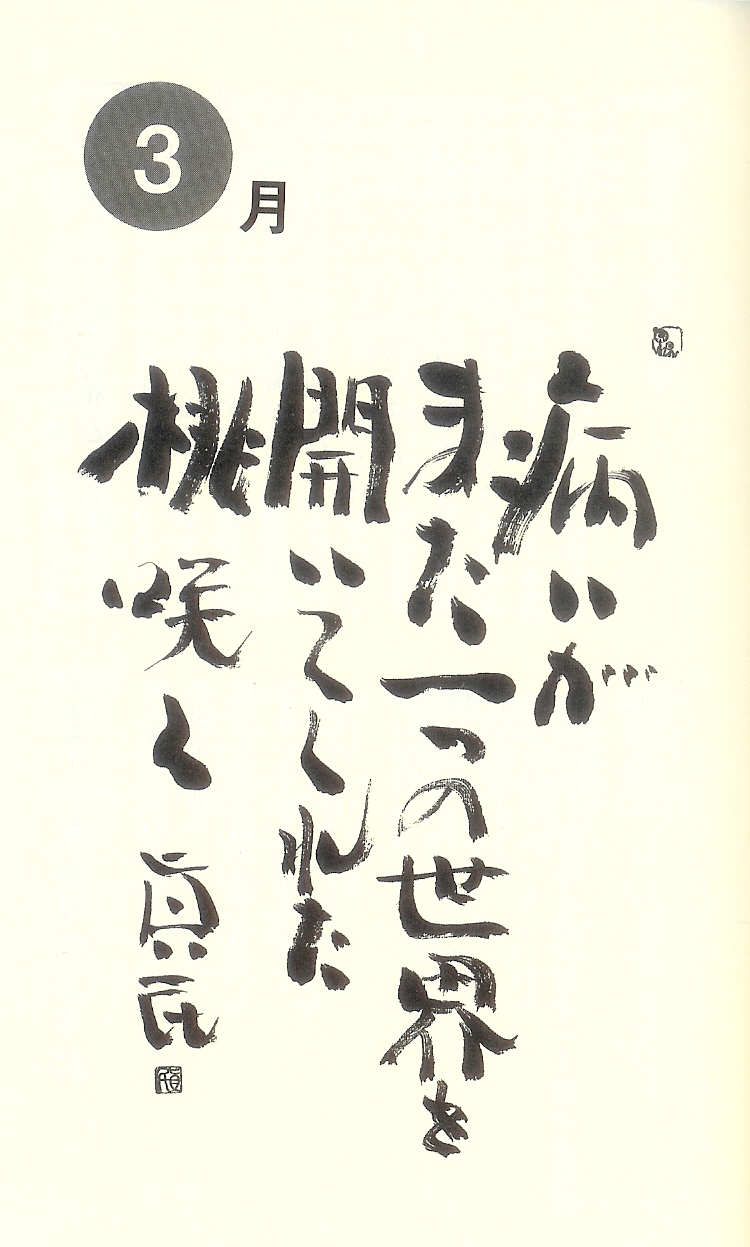 3月
病いが…
また一つの世界を
開いてくれた
桃咲く 真民